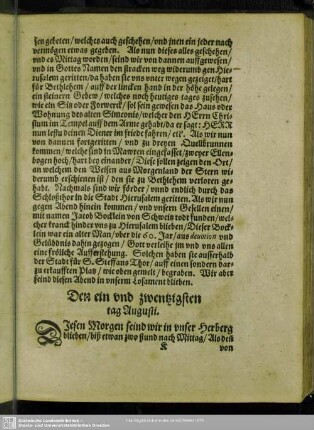 sen gebeten/welchs auch geschehen/vnd jnen ein jeder nach
vermögen etwas gegeben. Als nun dieses alles geschehen/
vnd es Mittag worden/seind wir von dannen auffgewesen/
vnd in Gottes Namen den straken weg widerumb gen Hie-
rusalem geritten/da haben sie vns vnter wegen gezeiget/hart
für Bethlehem/auff der lincken hand in der höhe gelegen/
ein steinern Gebew/welches noch heutiges tages zusehen/
wie ein Sitz oder Forwerck/sol sein gewesen das Haus oder
Wohnung des alten Simeonis/welcher den HErrn Chri-
stum im Tempel auff dem Arme gehabt/da er sagt: HERR
nun lestu deinen Diener im friede fahren/etc. Als wir nun
von dannen fortgeritten/vnd zu dreyen Quellbrunnen
kommen/welche sind in Marmor eingefasset/zweyer Ellen-
bogen hoch/hart bey einander/Diese sollen zeigen den Ort/
an welchem den Weisen aus Morgenland der Stern wi-
derumb erschienen ist/den sie zu Bethlehem verloren ge-
habt. Nachmals sind wir förder/vnnd endlich durch das
Schloßthor in die Stadt Hierusalem geritten. Als wir nun
gegen Abend hinein kommen/vnd vnsern Gesellen einen/
mit namen Jacob Böcklein von Schwein todt funden/wel-
cher kranck hinder vns zu Hierusalem blieben/Dieser Böck-
lein war ein alter Man/vber die 60. Jar/aus devotion vnd
Gelübdnis dahin gezogen/Gott verleihe jm vnd vns allen
eine fröliche Aufferstehung. Solchen haben sie ausserhalb
der Stadt für S. Steffans Thor/auff einen sondern dar-
zu erkaufften Platz/wie oben gemelt/begraben. Wir aber
seind diesen Abend in vnserm Losament blieben.
Den ein vnd zwentzigsten
tag Augusti.
DIesen Morgen seind wir in vnser Herberg
blieben/biß etwan zwo stund nach Mittag/Als denn
K
von